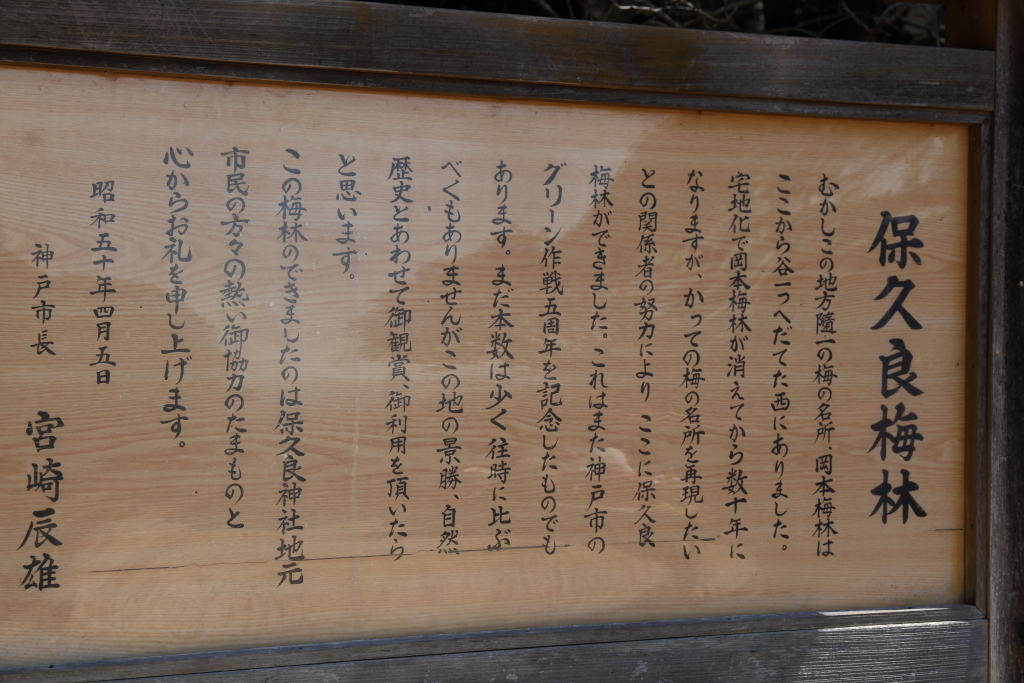 保久良梅林
むかしこの地方隨一の梅の名所、岡本梅林は
ここから谷一つへだてた西にありました。
宅地化で岡本梅林が消えてから数十年に
なりますが、かっての梅の名所を再現したい
との関係者の努力により ここに保久良
梅林ができました。これはまた神戸市の
グリーン作戦五周年を記念したものでも
あります。また本数は少く 往時に比ぶ
べくもありませんがこの地の景勝、自然
歴史とあわせて御観賞、御利用を頂いたら
と思います。
この梅林のできましたのは保久良神社地元
市民の方々の熱い御協力のたまものと
心からお礼を申し上げます。
昭和五十年四月五日
神戸市長 宮崎辰雄